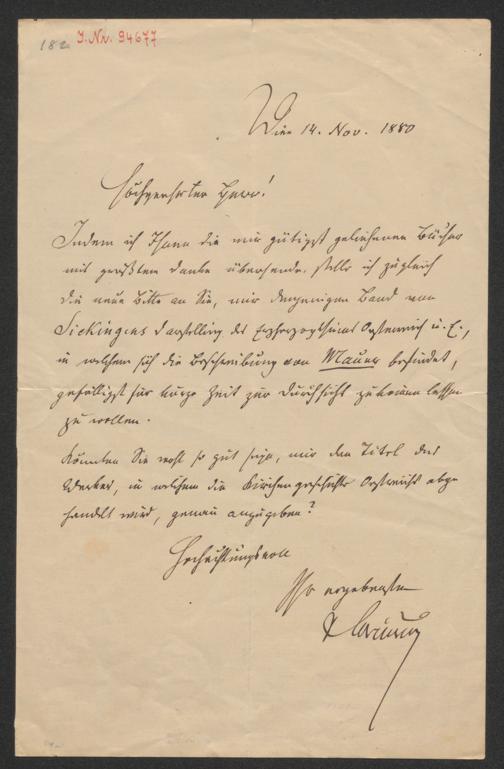 182 I. Nr. 94677
Wien 14. Nov. 1880
Hochgeehrter Herr!
Indem ich Ihnen die mir gütigst geliehenen Bücher
mit größtem Danke übersende, stelle ich zugleich
die neue Bitte an Sie, mir denjenigen Band von
Sickingens Darstellung des Erzherzogthums Oesterreich u. E.,
in welchem sich die Beschreibung von Mauer befindet,
gefälligst für kurze Zeit zur Durchsicht zukommen lassen
zu wollen.
Könnten Sie wohl so gut sein, mir den Titel des
Werkes, in welchem die Kirchengeschichte Oesterreichs abge
handelt wird, genau anzugeben?
Hochachtungsvoll
Ihr ergebenster